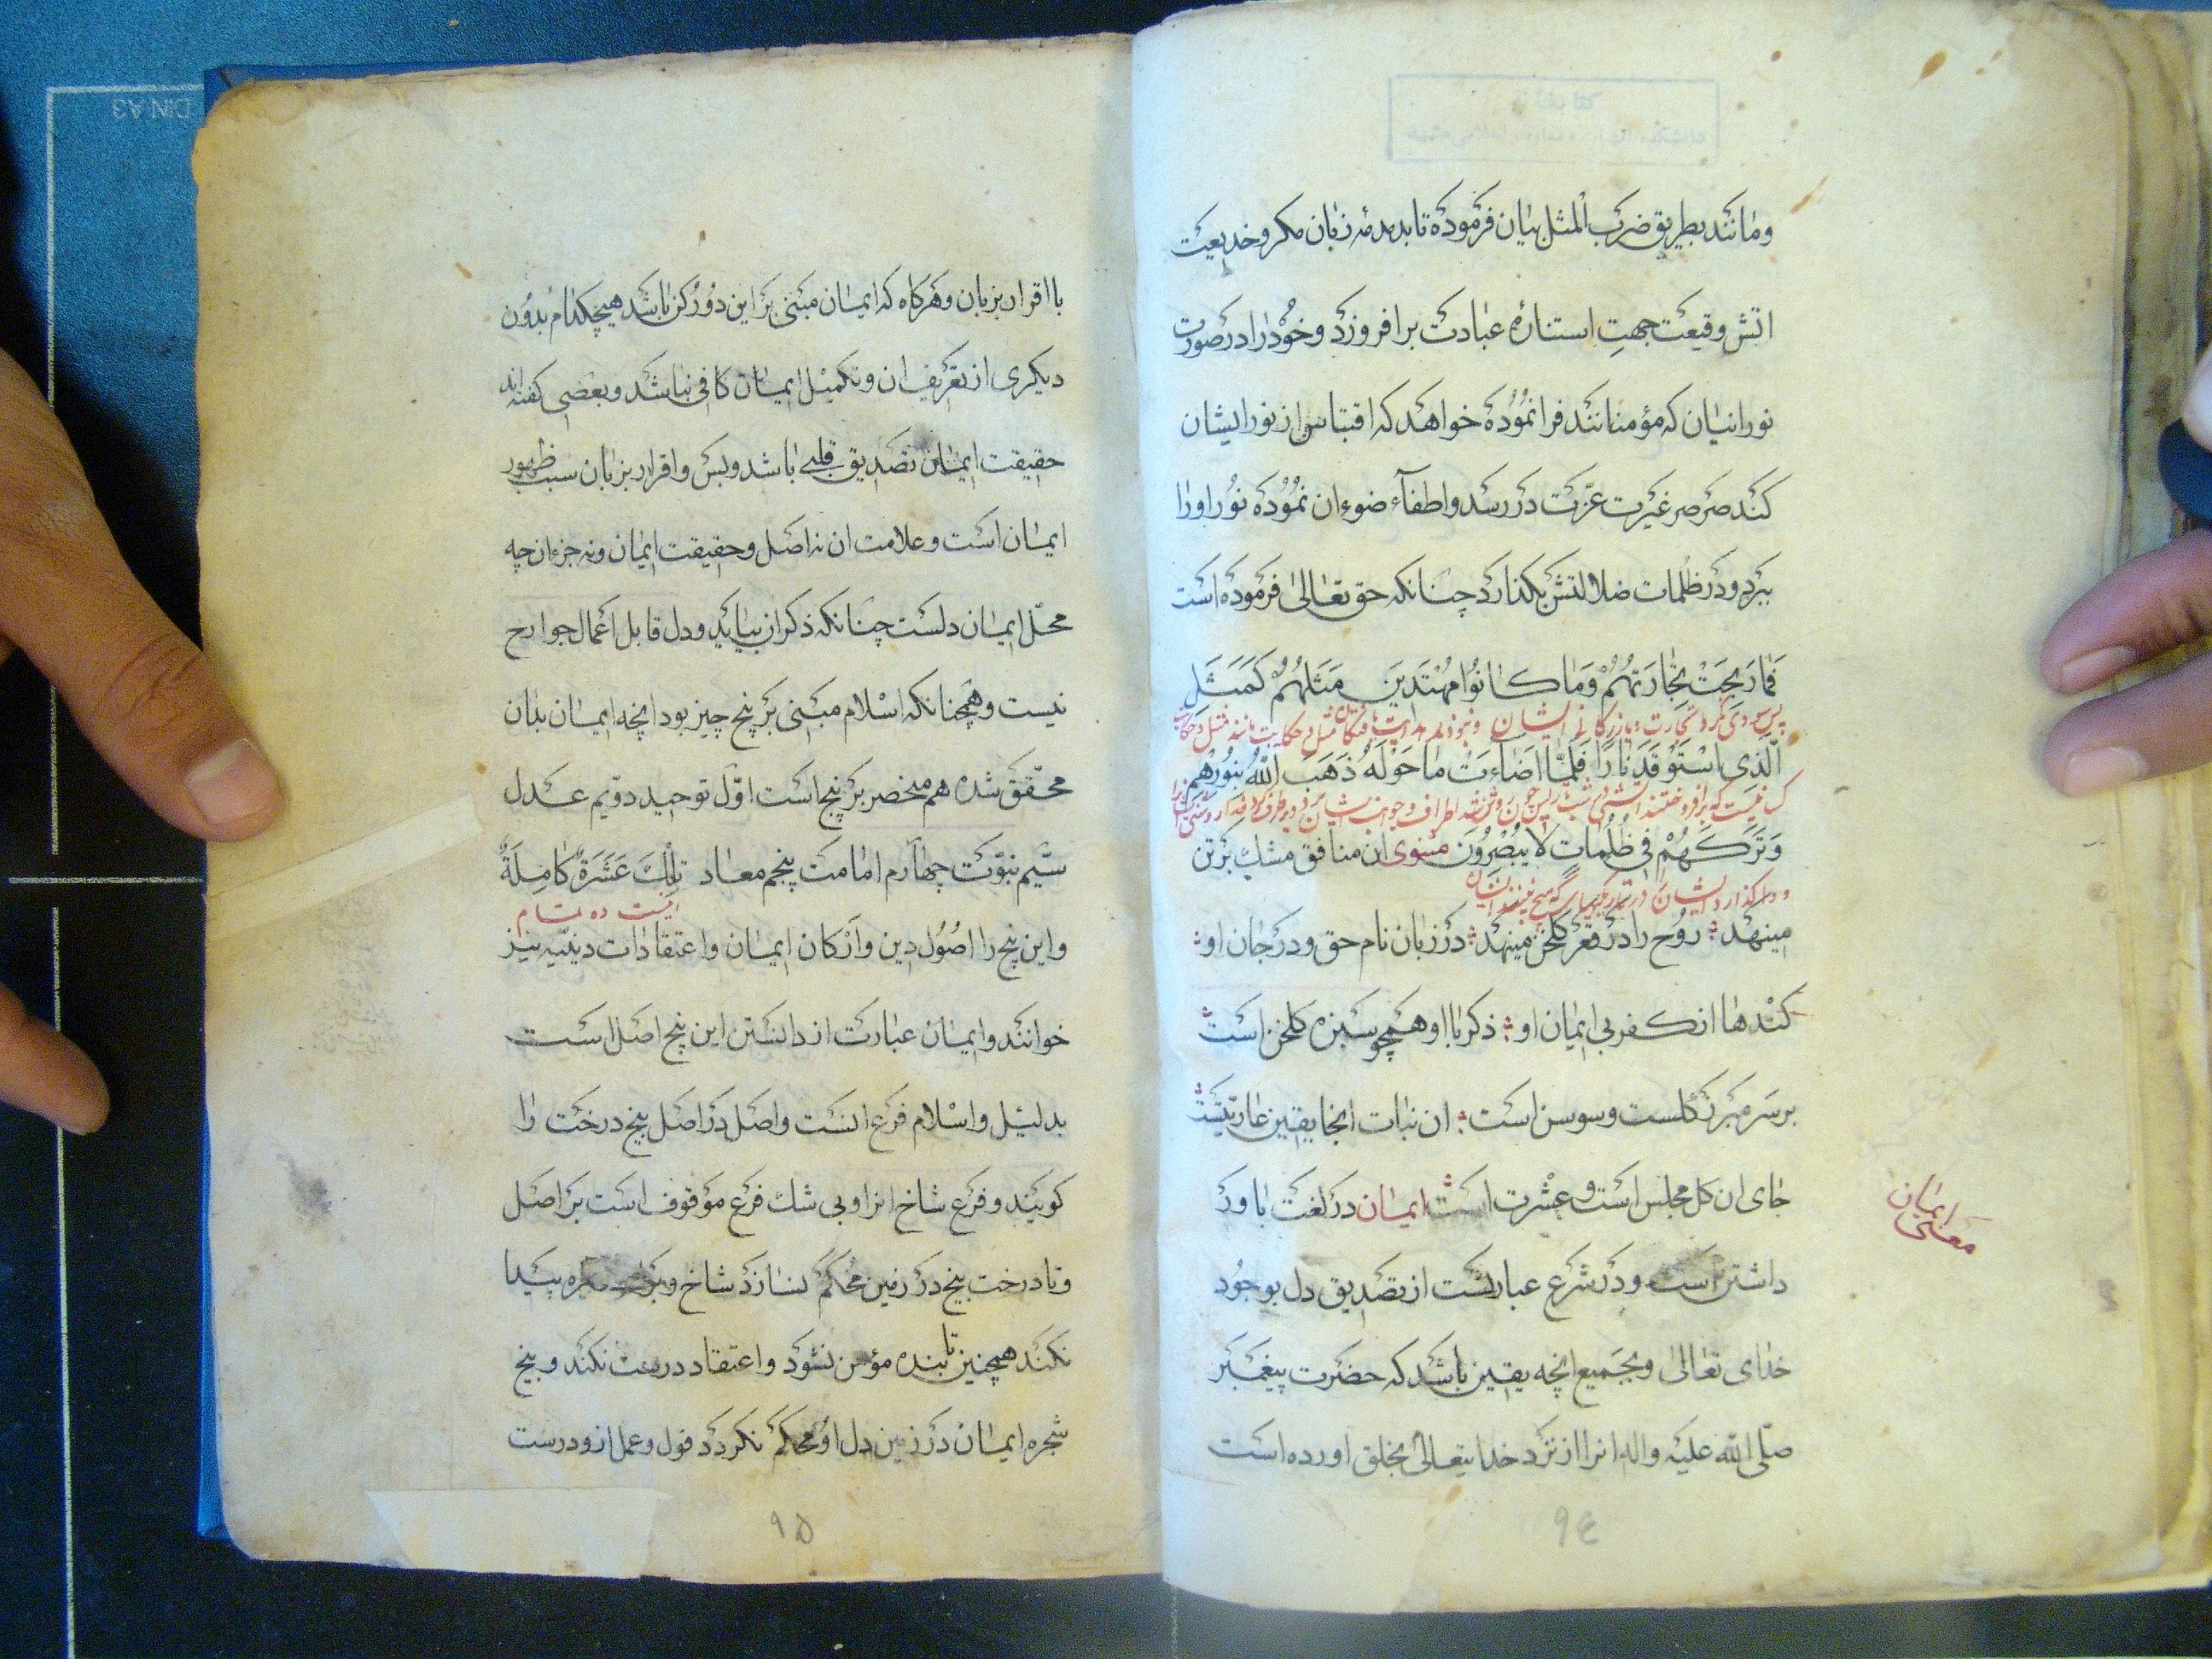 ومانند بطریق ضرب المثل بیان فرموده تا بدمدمه زبان مکر و خدیعت
اتش وقیعت جهت استناره عبادت برافروزد و خود را در صورت
نورانیان که مؤمنانند فرا نموده خواهد که اقتباس از نور ایشان
کند صرصر غیرت عزت در رسد و اطفآء ضوء ان نموده نور او را
ببرد و در ظلمات ضلالتش بگذارد چنانکه حق تعالی فرموده است
فَمَا رَبِحَتْ تِجَارَتُهُمْ وَمَا كَانُوا مُهْتَدِينَ مَثَلُهُمْ كَمَثَلِ
پس سودی نکرد تجارت و بازرگانی ایشان و نبودند هدایت یافتگان مثل و حکایت مانند مثل و حکایت
الَّذِي اسْتَوْقَدَ نَارًا فَلَمَّا اَضَاءَتْ مَا حَوْلَهُ ذَهَبَ اللّٰهُ بِنُورِهِمْ
کسانیست که برافروختند اتشی در شب پس چون روشن شد اطراف و جوانب ایشان
وَتَرَكَهُمْ فِي ظُلُمَاتٍ لَا يُبْصِرُونَ مثنوی ان منافق مشک برتن
و واگذارد ایشان را در تاریکیها که هیچ نبینند ایشان
مینهد ؛ روح را در قعر گلخن مینهد ؛ در زبان نام حق و در جان او ؛
گندها از کفر بی ایمان او ؛ ذکر با او همچو سبزه گلخن است
بر سر مبرز گلست و سوسن است ؛ ان نبات انجا یقین عاریتست
جای ان گل مجلس است و عشرت است ایمان در لغت باور
معنی ایمان
داشتن است و در شرع عبارتست از تصدیق دل بوجود
خدای تعالی و بجمیع انچه یقین باشد که حضرت پیغمبر
صلّی اللّه علیه واله انرا از نزد خدایتعالی بخلق اورده است
۹۴
با اقرار بزبان و هرگاه که ایمان مبنی بر این دو رکن باشد هیچکدام بدون
دیگری از تعریف ان و تکمیل ایمان کافی نباشد و بعضی گفته اند
حقیقت ایمان تصدیق قلبی باشد و بس و اقرار بزبان سبب ظهور
ایمان است و علامت ان نه اصل و حقیقت ایمان و نه جزء ان چه
محلّ ایمان دلست چنانکه ذکر ان بیاید و دل قابل اعمال جوارح
نیست و همچنانکه اسلام مبنی بر پنج چیز بود انچه ایمان بدان
محقّق شده هم منحصر بر پنج است اوّل توحید دویم عدل
سیّم نبوّت چهارم امامت پنجم معاد تِلْكَ عَشَرَةٌ كَامِلَةٌ
اینست ده تمام
و این پنج را اصول دین و ارکان ایمان و اعتقادات دینیّه نیز
خوانند و ایمان عبارت از دانستن این پنج اصل است
بدلیل و اسلام فرع انست و اصل در اصل بیخ درخت را
گویند و فرع شاخ انرا و بی شک فرع موقوف است بر اصل
و تا درخت بیخ در زمین محکم نسازد شاخ و میوه پیدا
نکند همچنین تا بنده مؤمن نشود و اعتقاد درست نکند و بیخ
شجره ایمان در زمین دل او محکم نگردد قول و عمل ازو درست
۹۵
DIN A3